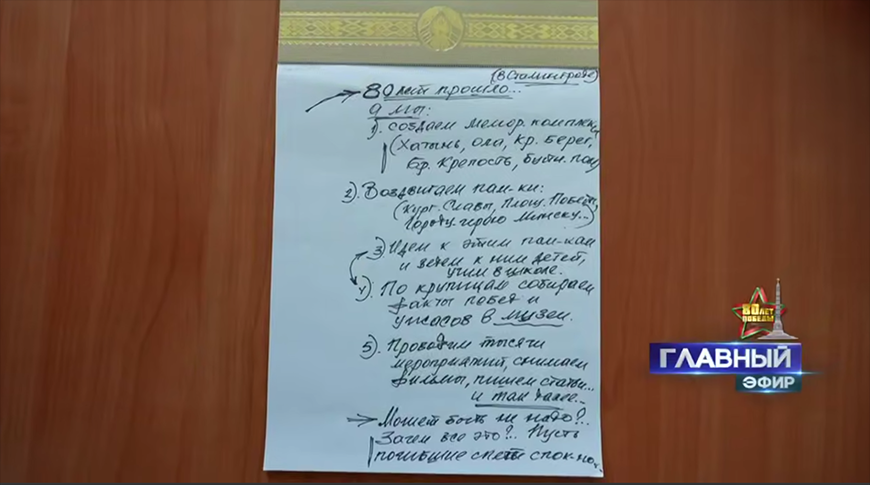 (В Сталинграде)
80 лет прошло...
А мы:
1). Создаем мемор. комплекс
(Хатынь, Ола, Кр. Берег,
Бр. Крепость,
2). Воздвигаем пам-ки:
(Кург. Славы, Площ. Победы,
Городу-герою Минску...)
3) Идем к этим пам-кам
и ведем к ним детей,
учим в школе.
4). По крупицам собираем
факты побед и
ужасов в музеи.
5). Проводим тысячи
мероприятий, снимаем
фильмы, пишем статьи...
и так далее..
Может быть не надо?..
Зачем все это?.. Пусть
погибшие спят спок-но.
80 ЛЕТ
ПОБЕДЫ
ГЛАВНЫЙ
ЭФИР